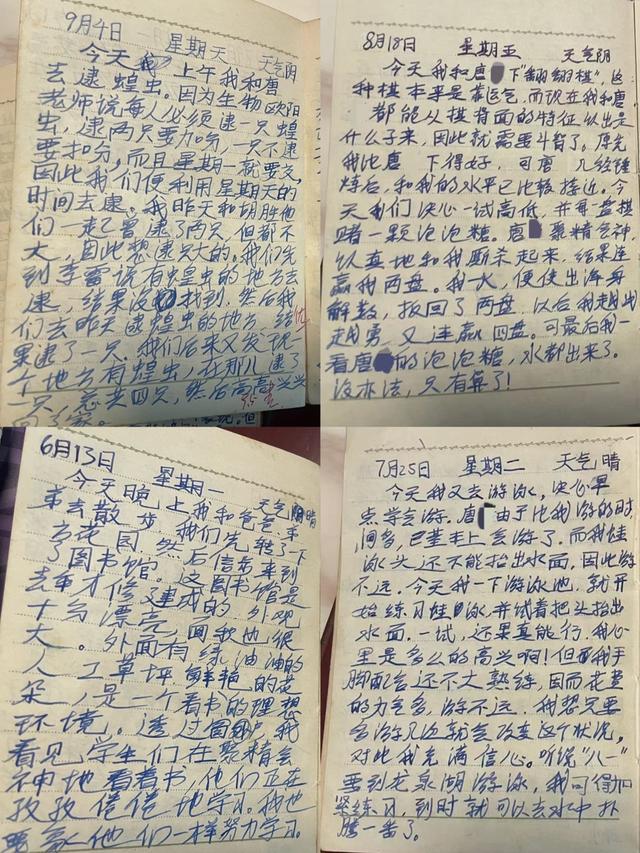 9月4日 星期天 天气阴
今天我上午我和唐
去逮蝗虫。因为生物欧阳
老师说每人必须逮一只蝗
虫,逮两只要加分,一只不逮
要扣分,而且星期一就要交,
因此我们便利用星期天的
时间去逮。我昨天和胡胜他
们一起曾逮了两只但都不
大,因此想逮只大的。我们先
到李雷说有蝗虫的地方去
逮,结果没找到,然后我
们去昨天逮蝗虫的地方,结
果逮了一只。我们后来又发现一
个地方有蝗虫,在那儿逮了
一只,总共四只,然后高高兴兴
8月18日 星期五 天气阴
今天我和唐 下“翻翻棋”,这
种棋本乎是靠运气,而现在我和唐
都能从棋背面的特征,认出是
什么子来,因此就需要斗智了。原先
我比唐 下得好,可唐 几经锤
炼后,和我的水平已比较接近。今
天我们决心一试高低,并每一盘棋
赌一颗泡泡糖。唐 聚精会神
认真地和我厮杀起来,结果连
赢我两盘。我一火,便使出浑身
解数,扳回了两盘,以后我越战
越勇,又连赢四盘。可最后我一
看唐 的泡泡糖,水都出来了。
没办法,只有算了!
6月13日 星期一 天气阴晴
今天晚上我和爸爸来
弟去散步,我们先转了一下
百花园,然后信步来到
了图书馆。这图书馆是
去年才修建成的,外观
十分漂亮,面积也很
大。外面有绿油油的
人工草坪,鲜艳的花
朵,是一个看书的理想
环境。透过窗户,我
看见学生们在聚精会
神地看着书,他们正在
孜孜倦倦地学习。我也
要象他们一样努力学习。
7月25日 星期二 天气晴
今天我又去游泳,决心早
点学会游。唐 由于比我游的时
间多,已基本上会游了。而我蛙
泳头还不能抬出水面,因此游
不远。今天我一下游泳池,就开
始练习蛙泳,并试着把头抬出
水面。一试,还果真能行,我心
里是多么的高兴啊!但我手
脚配合还不大熟练,因而花费
的力气多,游不远。我想只要
多游几次就会改变这个状况,
对此我充满信心。听说“八一”
要到龙泉湖游泳,我可得加
紧练习,到时就可以去水中扑
腾一番了。